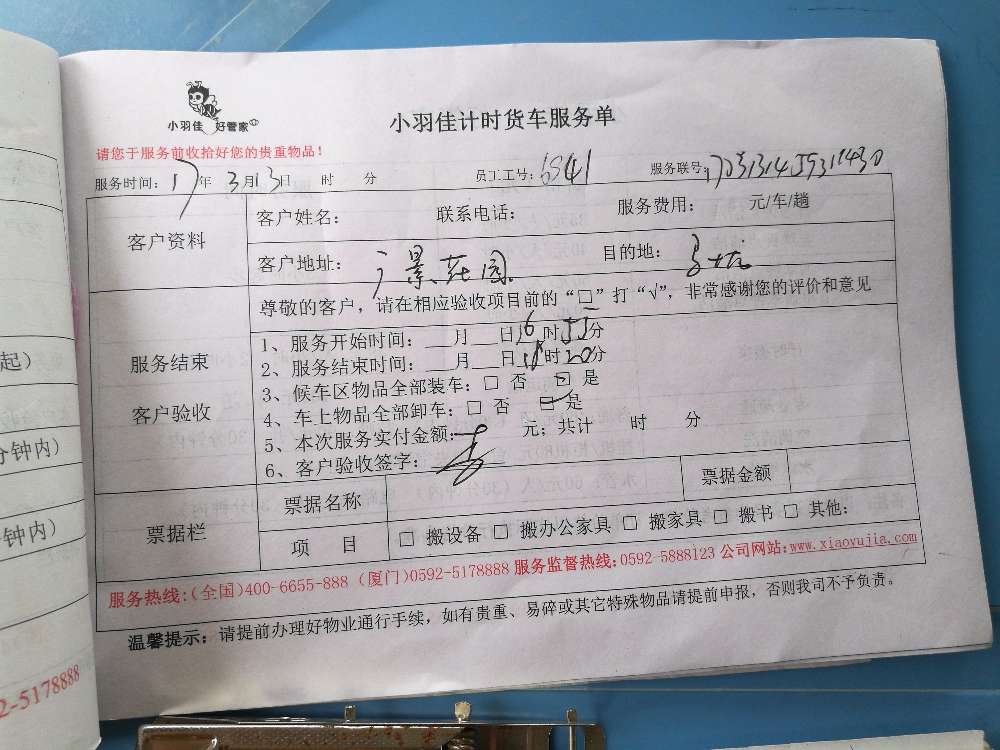 小羽佳 好管家
小羽佳计时货车服务单
请您于服务前收拾好您的贵重物品！
服务时间：17年 3月13日 时 分 员工工号：6841 服务联号：
客户资料
客户姓名： 联系电话： 服务费用： 元/车/趟
客户地址：广景花园 目的地：
服务结束
客户验收
尊敬的客户，请在相应验收项目前的“□”打“√”，非常感谢您的评价和意见
1、服务开始时间：___月___日16时55分
2、服务结束时间：___月___日18时20分
3、候车区物品全部装车：□ 否 □ 是
4、车上物品全部卸车：□ 否 □ 是
5、本次服务实付金额： 元；共计 时 分
6、客户验收签字：
票据栏
票据名称 票据金额
项 目 □ 搬设备 □ 搬办公家具 □ 搬家具 □ 搬书 □ 其他：
服务热线：(全国)400-6655-888 (厦门)0592-5178888 服务监督热线：0592-5888123 公司网站：www.xiaoyujia.com
温馨提示：请提前办理好物业通行手续，如有贵重、易碎或其它特殊物品请提前申报，否则我司不予负责。
起）
分钟内）
钟内）
2-5178888